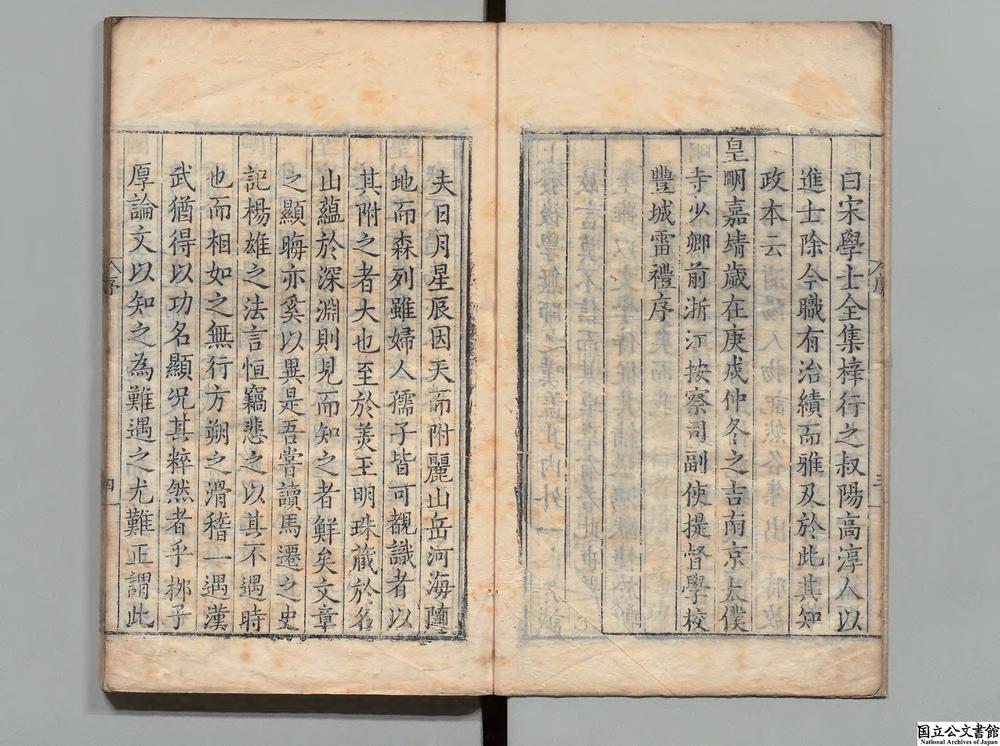 曰宋學士全集梓行之叔陽高淳人以
進士除今職有治績而雅及於此其知
政本云
皇明嘉靖歲在庚戌仲冬之吉南京太僕
寺少卿前浙江按察司副使提督學校
豐城雷禮序
夫日月星辰因天而附麗山岳河海隨
地而森列雖婦人孺子皆可觀識者以
其附之者大也至於美玉明珠藏於名
山蘊於深淵則見而知之者鮮矣文章
之顯晦亦奚以異是吾嘗讀馬遷之史
記楊雄之法言恒竊悲之以其不遇時
也而相如之無行方朔之滑稽一遇漢
武猶得以功名顯況其粹然者乎揶子
厚論文以知之為難遇之尤難正謂此
序
三
序
四
国立公文書館
National Archives of Japan